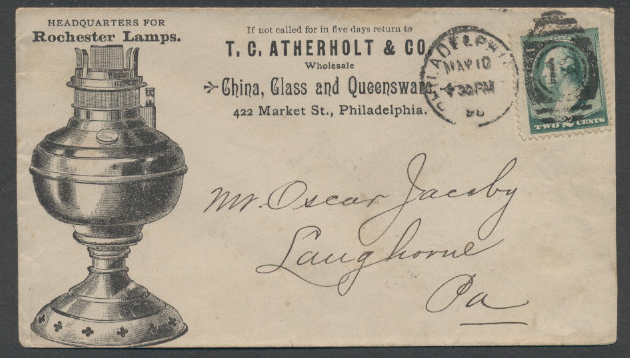 HEADQUARTERS FOR
Rochester Lamps.
If not called for in five days return to
T. C. ATHERHOLT & CO.
Wholesale
China, Glass and Queensware
422 Market St., Philadelphia.
PHILADELPHIA
MAY 10
30PM
TWO 2 CENTS
1
Mr. Oscar Jacoby
Langhorne
Pa